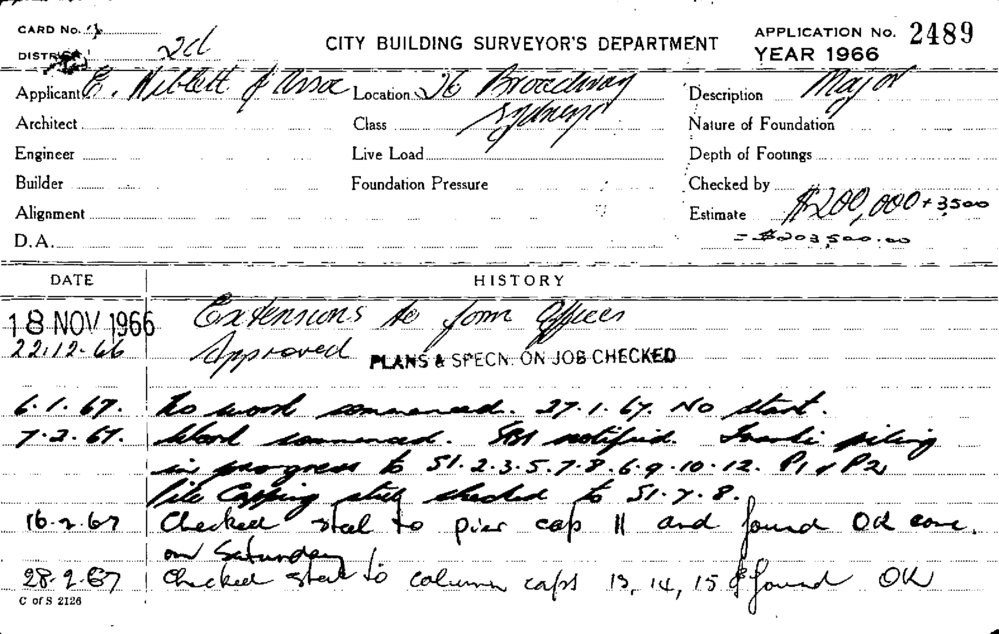 CARD No. 1
DISTRICT 2d
CITY BUILDING SURVEYOR'S DEPARTMENT
APPLICATION No. 2489
YEAR 1966
Applicant E. Niblett & Assoc Location 26 Broadway Sydney Description Major
Architect Class Nature of Foundation
Engineer Live Load Depth of Footings
Builder Foundation Pressure Checked by
Alignment Estimate $200,000 + 3,500
D.A. = $203,500.00
DATE HISTORY
18 NOV 1966 Extensions to form Offices
22.12.66 Approved PLANS & SPECN. ON JOB CHECKED
6.1.67. No work commenced. 27.1.67. No start.
7.2.67. Work commenced. notified. Franki piling
in progress to S1.2.3.5.7.8.6.9.10.12. P1 & P2
Pile Capping steel checked to S1.7.8.
16-2-67 Checked steel to pier cap 11 and found OK conc.
on Saturday
28-2-67 Checked steel to column caps 13, 14, 15 & found OK
C of S 2126